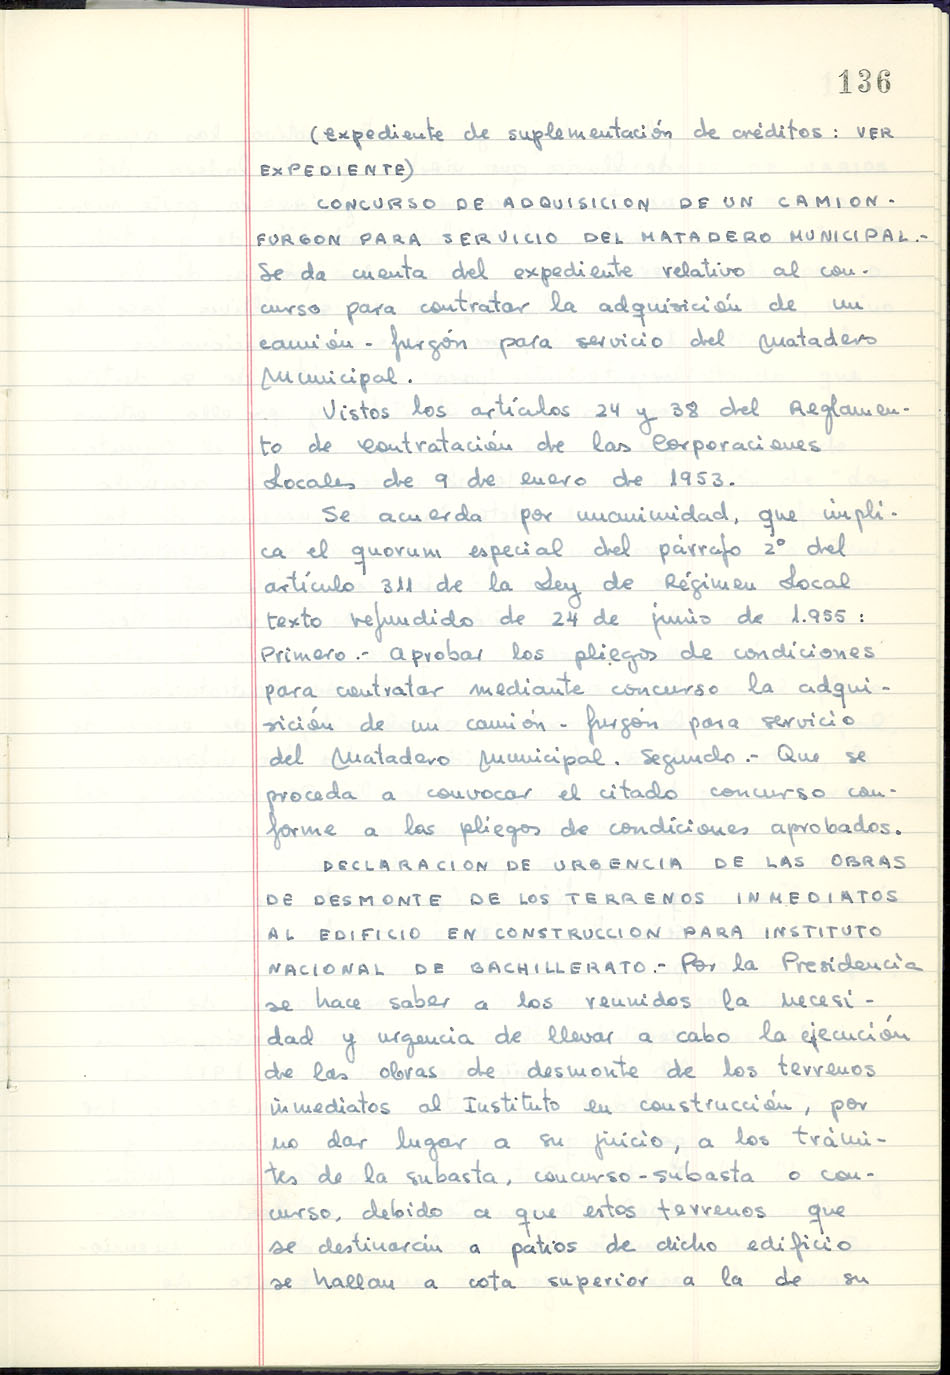 136
(Expediente de suplementación de créditos: VER
EXPEDIENTE)
CONCURSO DE ADQUISICION DE UN CAMION-
FURGON PARA SERVICIO DEL MATADERO MUNICIPAL.-
Se da cuenta del expediente relativo al con-
curso para contratar la adquisición de un
camión-furgón para servicio del Matadero
Municipal.
Vistos los artículos 24 y 38 del Reglamen-
to de Contratación de las Corporaciones
Locales de 9 de enero de 1953.
Se acuerda por unanimidad, que impli-
ca el quorum especial del párrafo 2º del
artículo 311 de la Ley de Régimen Local
texto refundido de 24 de junio de 1.955:
Primero.- Aprobar los pliegos de condiciones
para contratar mediante concurso la adqui-
sición de un camión-furgón para servicio
del Matadero Municipal. Segundo.- Que se
proceda a convocar el citado concurso con-
forme a los pliegos de condiciones aprobados.
DECLARACION DE URGENCIA DE LAS OBRAS
DE DESMONTE DE LOS TERRENOS INMEDIATOS
AL EDIFICIO EN CONSTRUCCION PARA INSTITUTO
NACIONAL DE BACHILLERATO.- Por la Presidencia
se hace saber a los reunidos la necesi-
dad y urgencia de llevar a cabo la ejecución
de las obras de desmonte de los terrenos
inmediatos al Instituto en construcción, por
no dar lugar a su juicio, a los trámi-
tes de la subasta, concurso-subasta o con-
curso, debido a que estos terrenos que
se destinarán a patios de dicho edificio
se hallan a cota superior a la de su